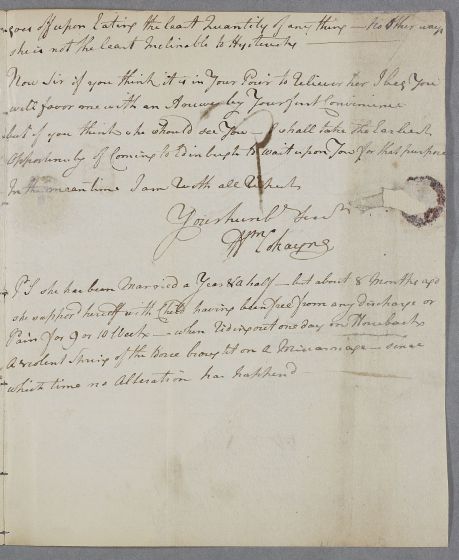 goes off upon Eating the least Quantity of any thing — no other ways
she is not the least Inclinable to Hystericks
Now Sir if you think it is in Your Power to Relieve her I beg You
will favor me with an Answer by Your first Convenience
but if you think she should see You — I shall take the Earliest
Opportunity of Coming to Edinburgh to wait upon You for that purpose
In the meantime I am with all respect
Your humble Servt
Wm Cokayne
PS she has been Married a Year & a half — but about 8 Months ago
she suppos'd herself with Child having been free from any discharge or
Pain for 9 or 10 Weeks — when Riding out one day on Horseback
A violent Spring of the Horse brought on a Miscarriage — since
which time no Alteration has happend